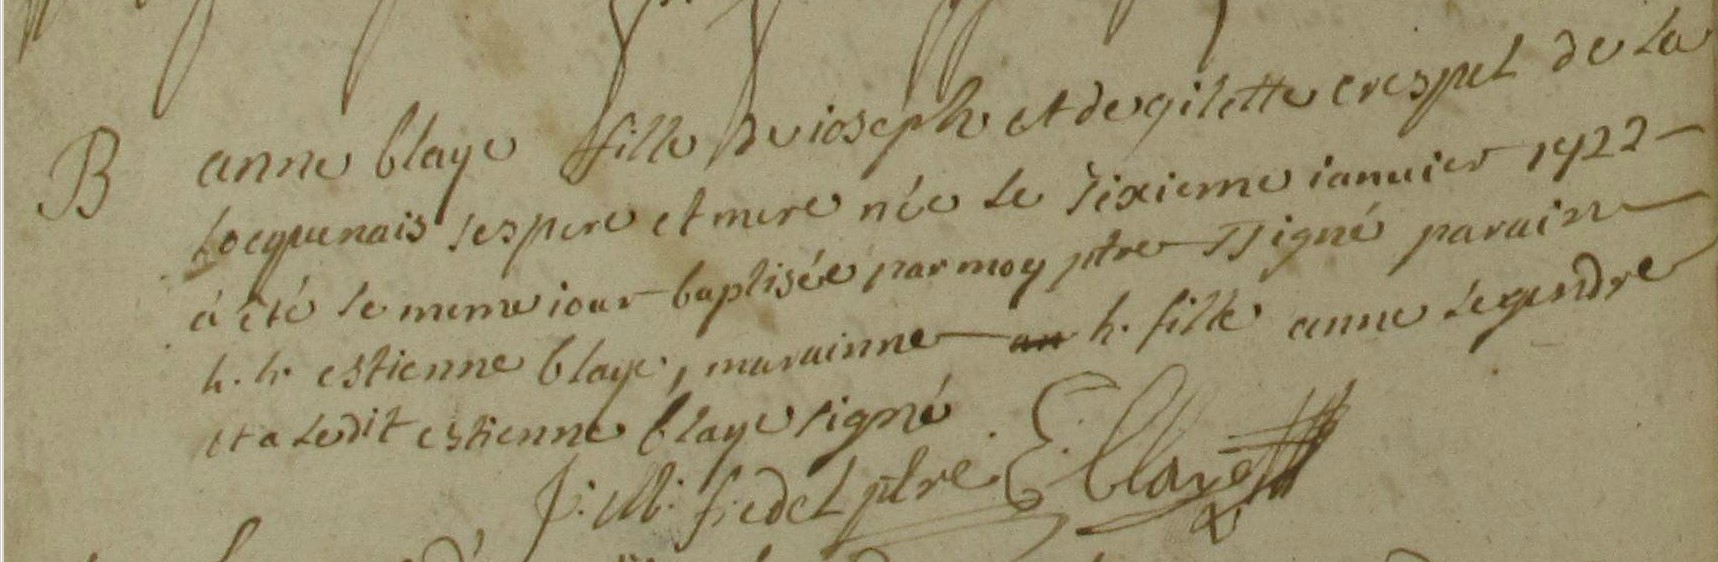 B anne blaye fille de ioseph et de gilette crespel de la
Locquenais ses pere et mere née le sixieme ianuier 1722
á été le meme iour baptisée par moy ptre ssigné parain
h. h. estienne blaye, marainne h. fille anne Legendre
et a Ledit estienne blaye signé
ptre E Blaye